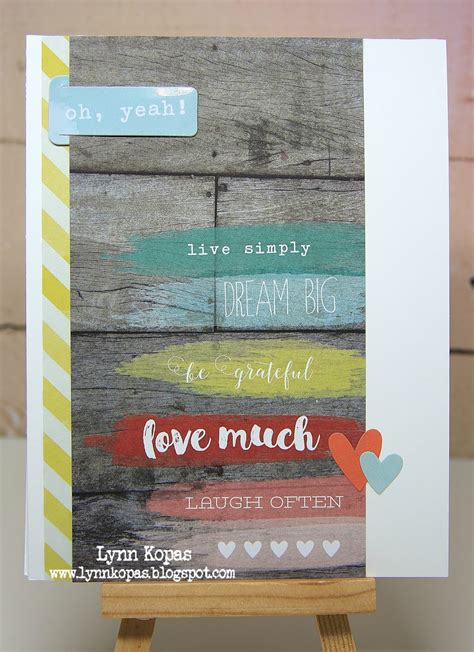 oh, yeah!
live simply
DREAM BIG
be grateful
love much
LAUGH OFTEN
Lynn Kopas
www.lynnkopas.blogspot.com